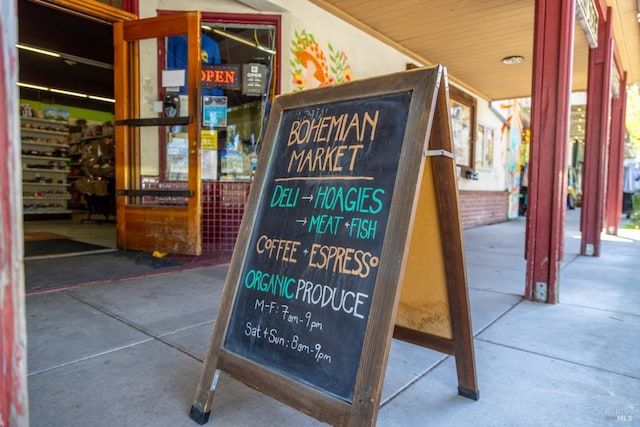 OPEN
BOHEMIAN
MARKET
DELI → HOAGIES
→ MEAT + FISH
COFFEE + ESPRESSO
ORGANIC PRODUCE
M-F: 7am-9pm
Sat + Sun: 8am-9pm
MLS